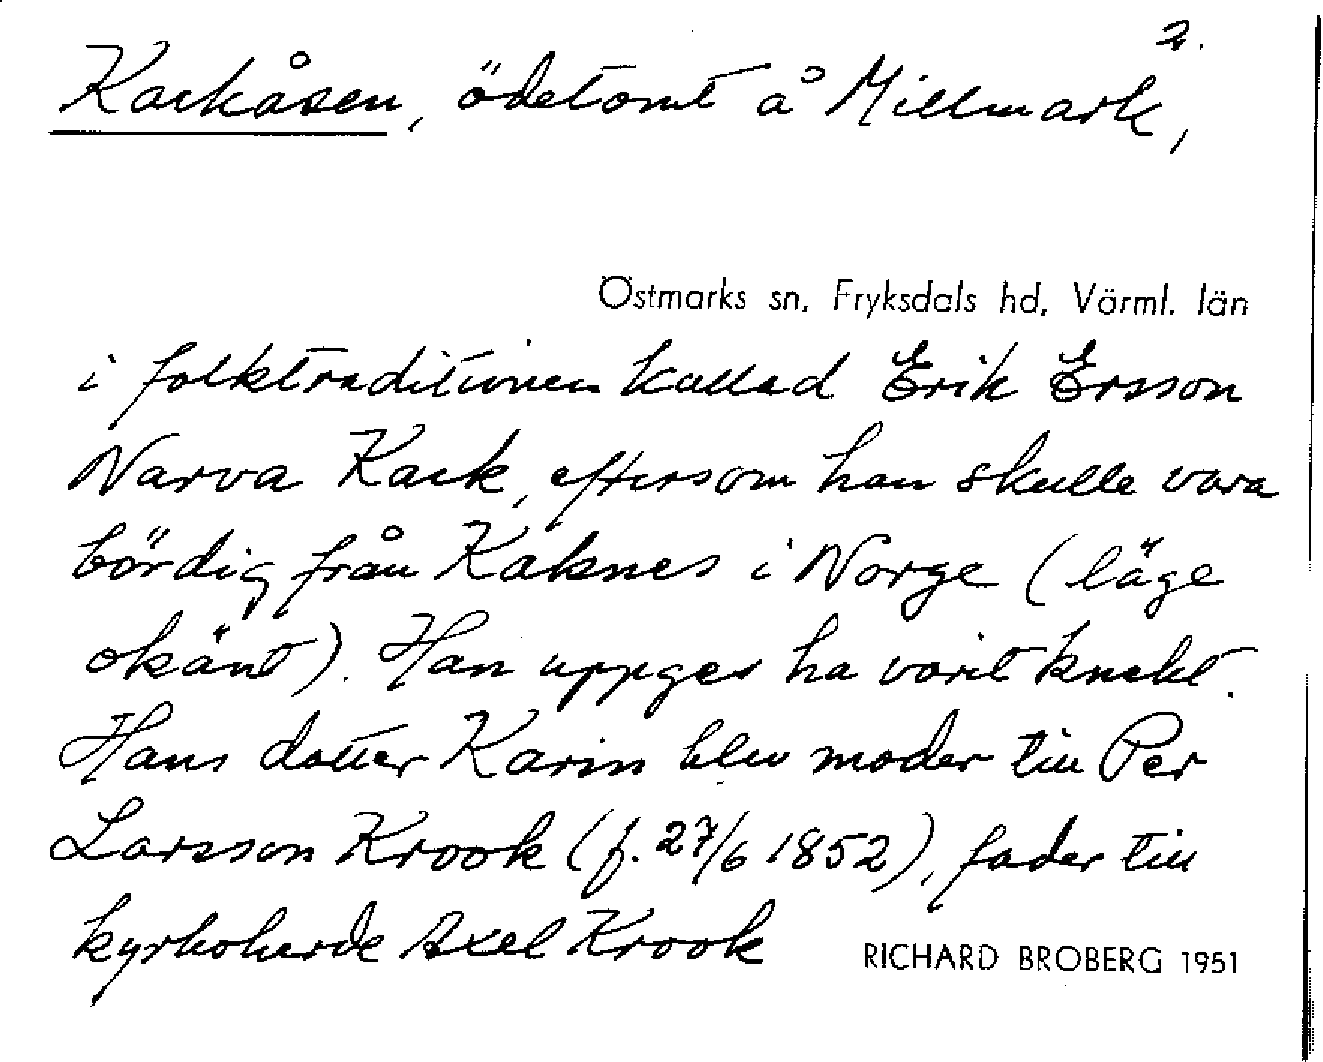 2.
Kackåsen, ödetomt å Millmark,
Östmarks sn, Fryksdals hd, Värml. län
i folktraditionen kallad Erik Ersson
Narva Kack, eftersom han skulle vara
bördig från Kaknes i Norge (läge
okänt). Han uppges ha varit knekt.
Hans dotter Karin blev moder till Per
Larsson Krook (f. 27/6 1852), fader till
kyrkoherde Axel Krook
RICHARD BROBERG 1951